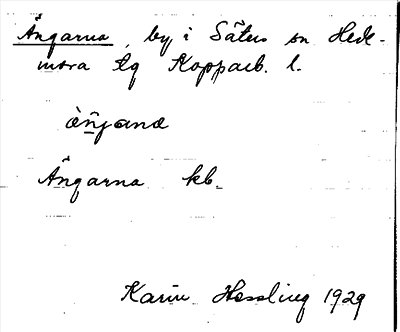 Ängarna, by i Säters sn Hede-
mora tg Kopparb. l.
àŋ̀ana
Ängarna kb.
Karin Hessling 1929